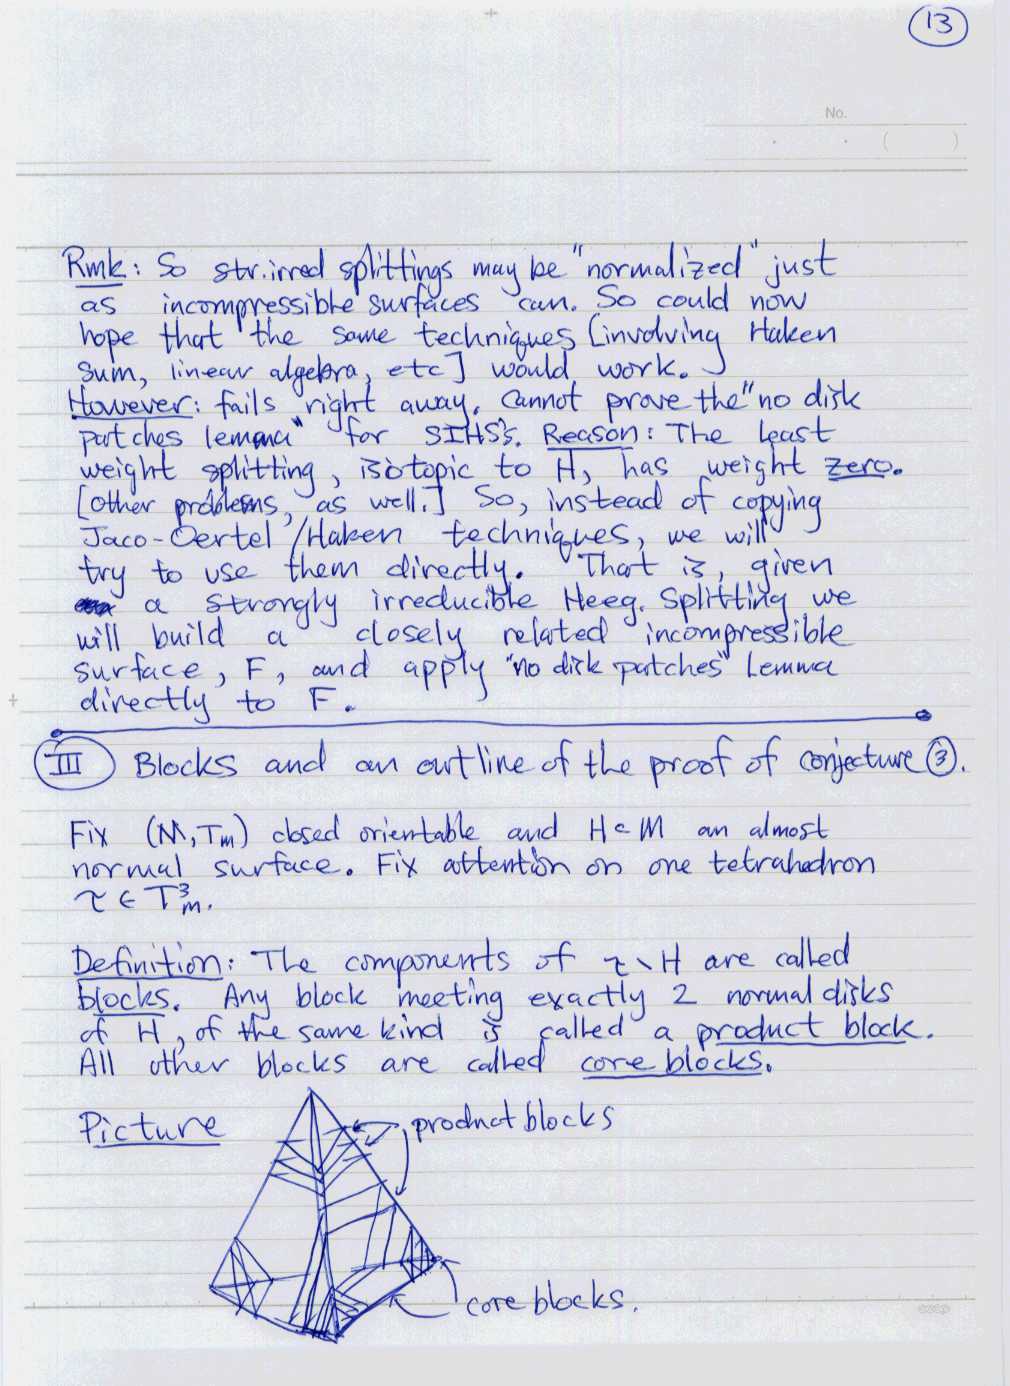 13
No.
Rmk: So str.irred splittings may be "normalized" just
as incompressible surfaces can. So could now
hope that the same techniques [involving Haken
Sum, linear algebra, etc] would work.
However: fails right away. Cannot prove the "no disk
patches lemma" for SIHS's. Reason: The least
weight splitting, isotopic to H, has weight zero.
[Other problems, as well.] So, instead of copying
Jaco-Oertel/Haken techniques, we will
try to use them directly. That is, given
a strongly irreducible Heeg. Splitting we
will build a closely related incompressible
surface, F, and apply "no disk patches" Lemma
directly to F.
III Blocks and an outline of the proof of conjecture ③.
Fix (M, T_M) closed orientable and H ⊂ M an almost
normal surface. Fix attention on one tetrahedron
τ ∈ T³_M.
Definition: The components of τ \ H are called
blocks. Any block meeting exactly 2 normal disks
of H, of the same kind is called a product block.
All other blocks are called core blocks.
Picture
product blocks
core blocks.